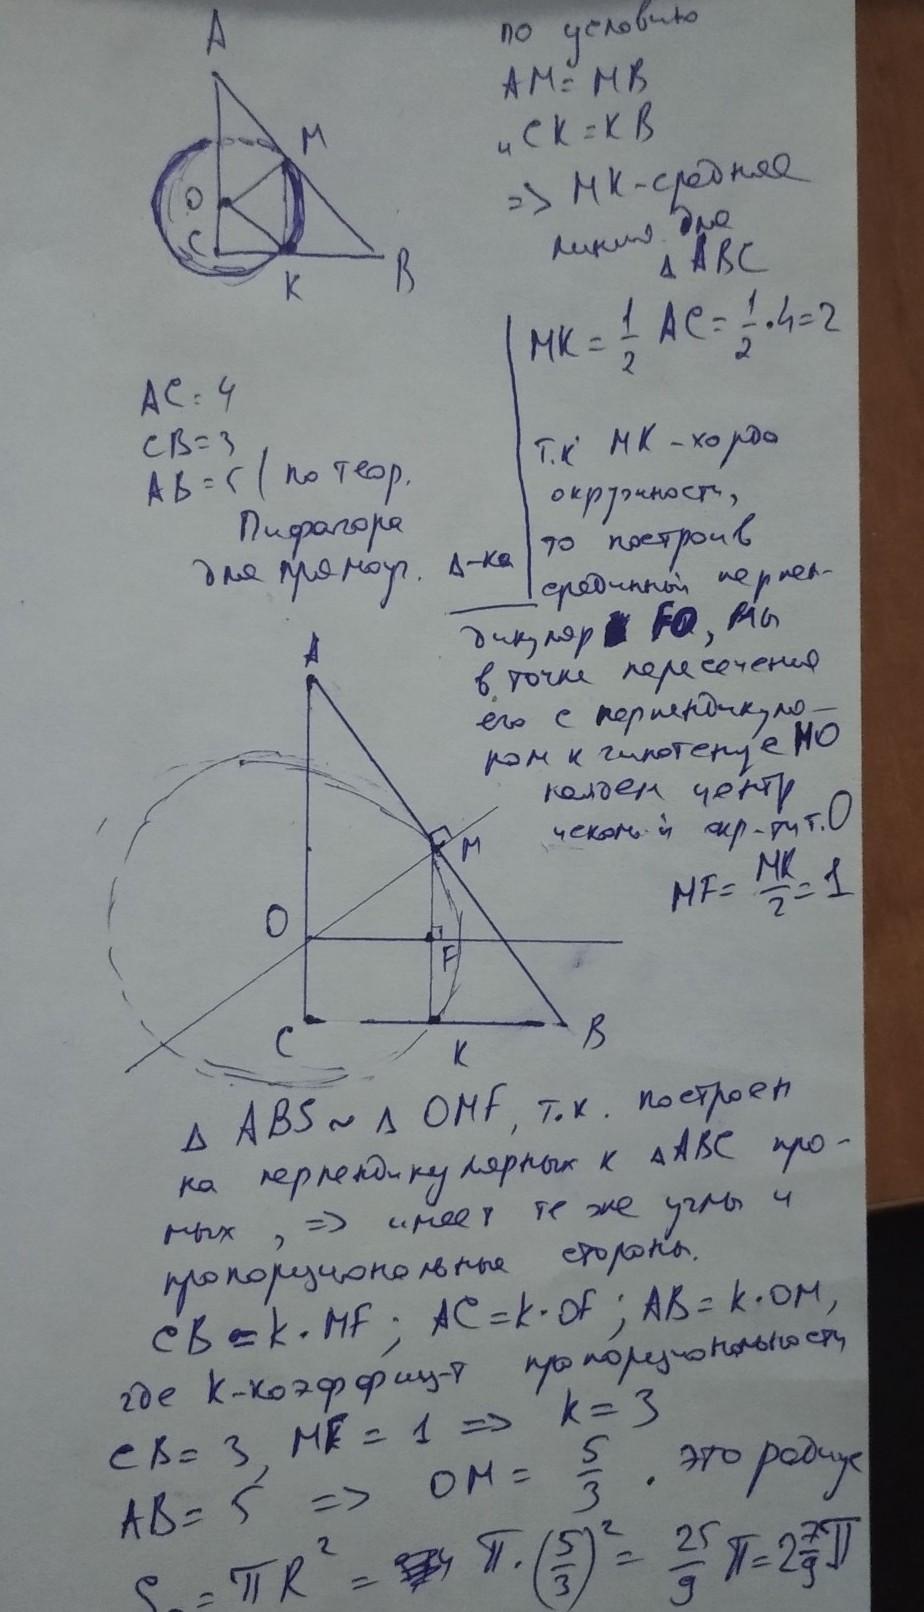 A
M
O
C
K
B
по условию
AM = MB
и CK = KB
=> MK - средняя
линия для
Δ ABC
MK = 1/2 AC = 1/2 · 4 = 2
AC = 4
CB = 3
AB = 5 ( по теор.
Пифагора
для прямоуг. Δ-ка
т.к MK - хорда
окружности,
то построив
срединный перпен-
дикуляр FO, мы
в точке пересечения
его с перпендикуля-
ром к гипотенузе MO
найдем центр
искомой окр-ти т. O
MF = MK/2 = 1
A
M
O
F
C
K
B
Δ ABS ~ Δ OMF, т.к. построен
на перпендикулярных к ΔABC пря-
мых, => имеет те же углы и
пропорциональные стороны.
CB = k · MF ; AC = k · OF ; AB = k · OM,
где k - коэффиц-т пропорциональности
CB = 3, MF = 1 => k = 3
AB = 5 => OM = 5/3 . это радиус
S = πR² = π · (5/3)² = 25/9 π = 2 7/9 π